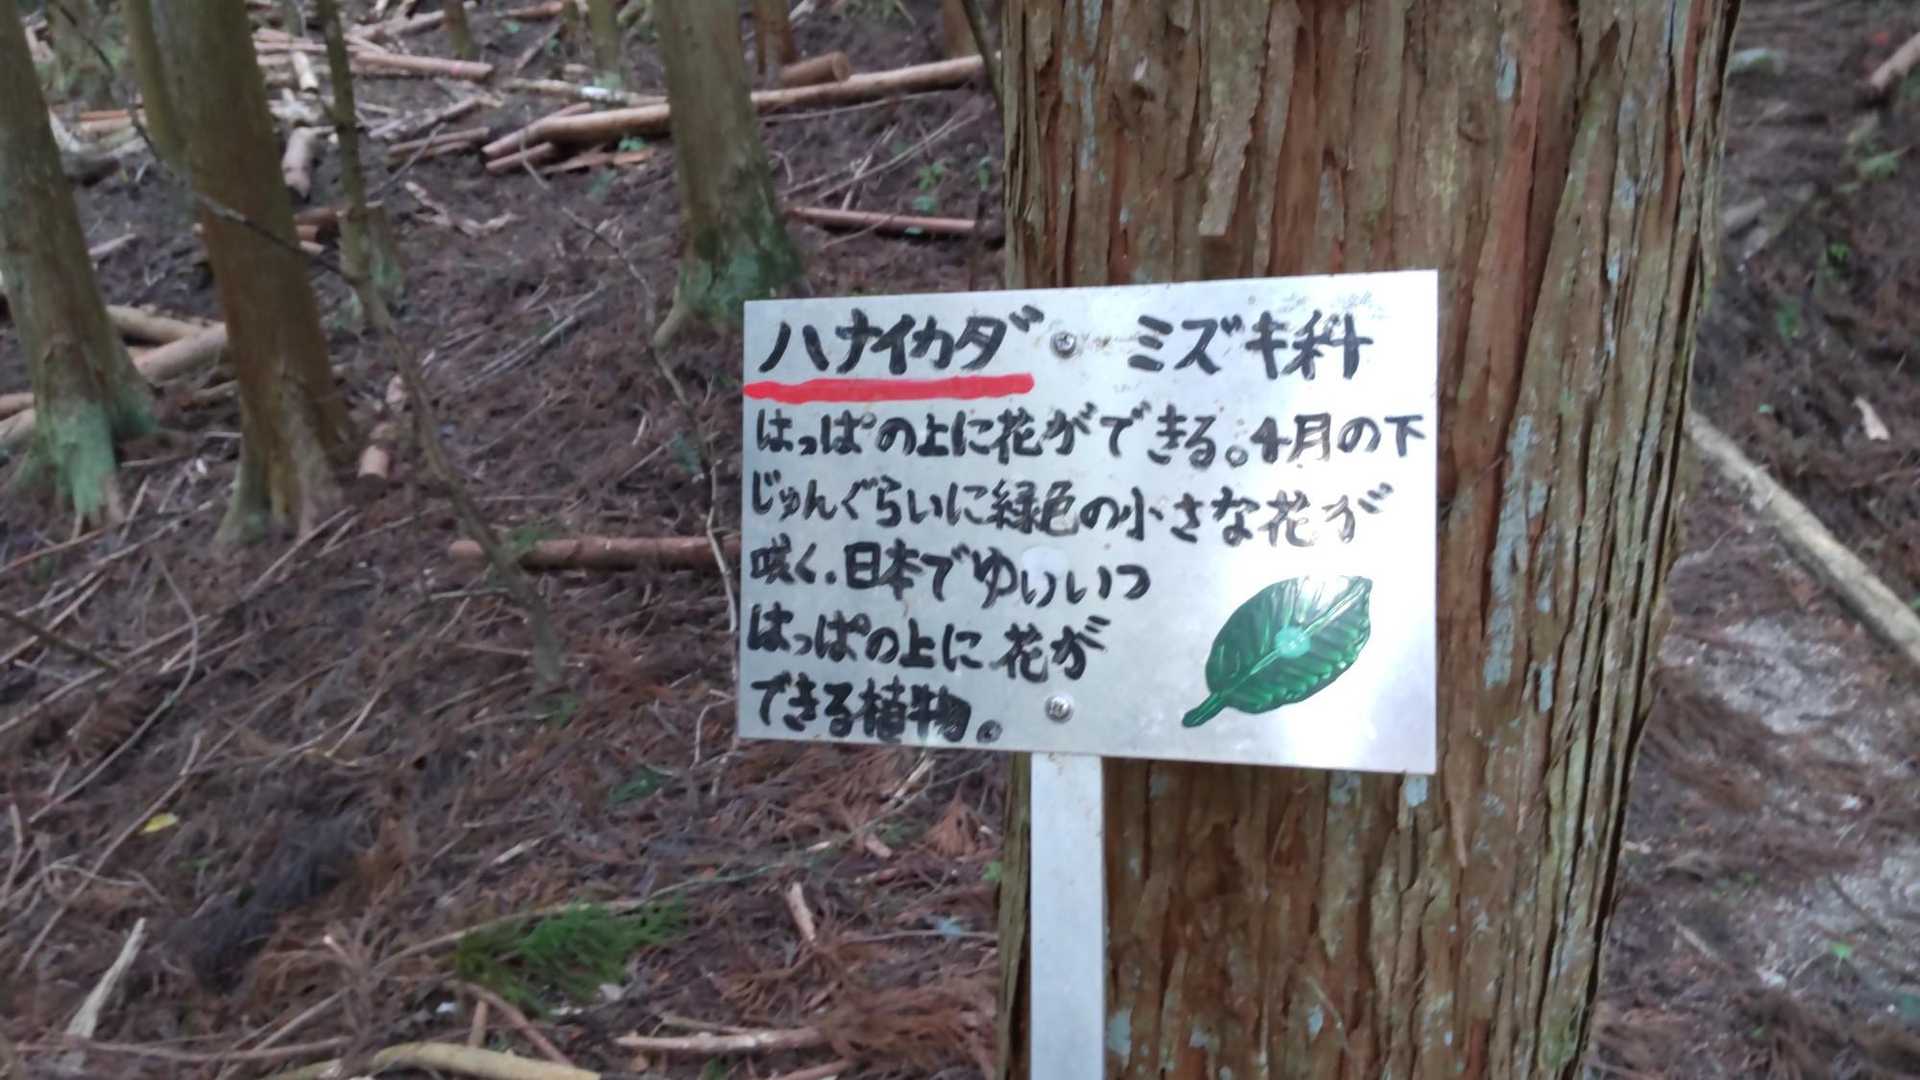 ハナイカダ ミズキ科
はっぱの上に花ができる。4月の下
じゅんぐらいに緑色の小さな花が
咲く.日本でゆいいつ
はっぱの上に花が
できる植物。